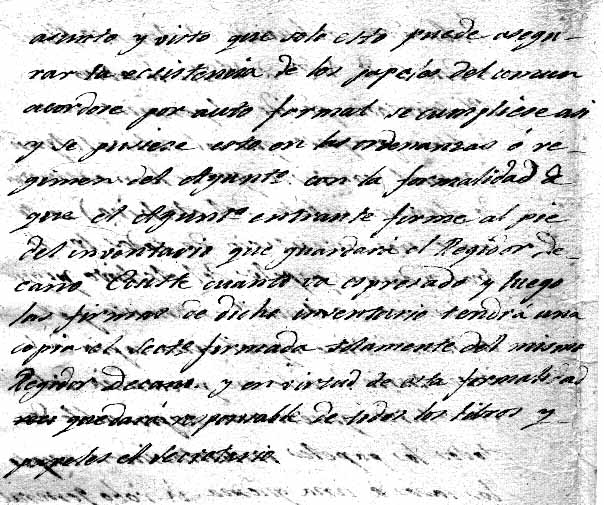 asunto y visto que solo esto puede asegu-
rar la ecsistencia de los papeles del comun
acordose por auto formal se cumpliese asi
y se pusiese esto en las ordenanzas ó re-
gimen del Ayuntº con la formalidad de
que el Ayuntº entrante firme al pie
del inventario que guardará el Regidor de-
cano cuanto va espresado y luego
las firmas de dicho inventario tendrá una
copia el Sectº firmada solamente del mismo
Regidor decano y en virtud de esta formalidad
quedará responsable de todos los libros y
papeles el Secretario